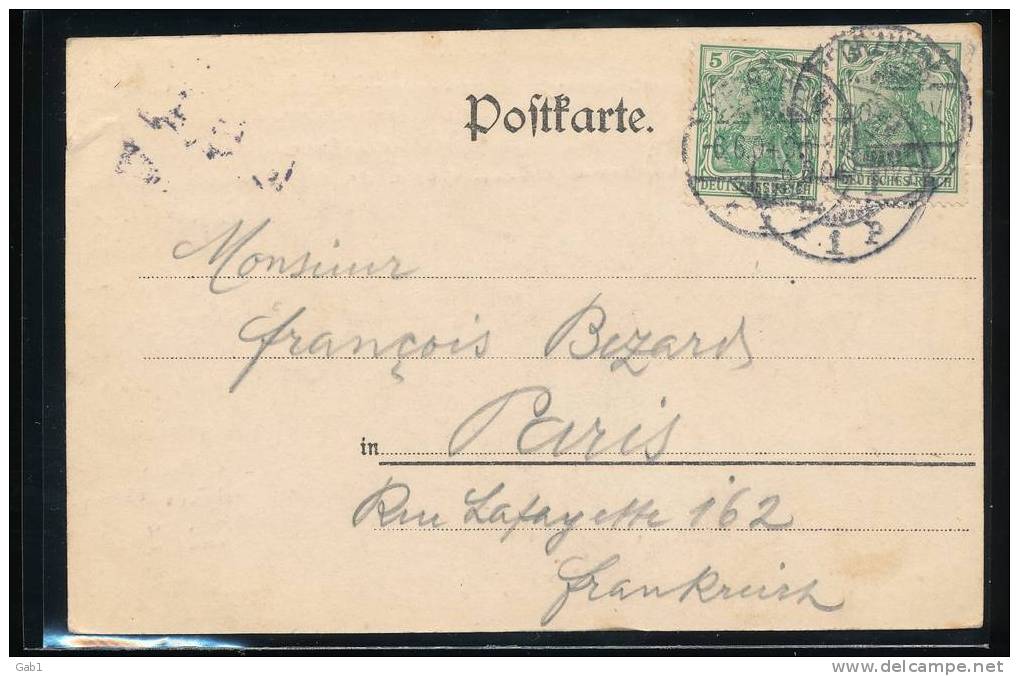 Postkarte.
5
DEUTSCHES REICH
DEUTSCHES REICH
-6.6.04
1
1 P
Monsieur
François Bezard
in Paris
Rue Lafayette 162
Frankreich
Gab1
www.delcampe.net